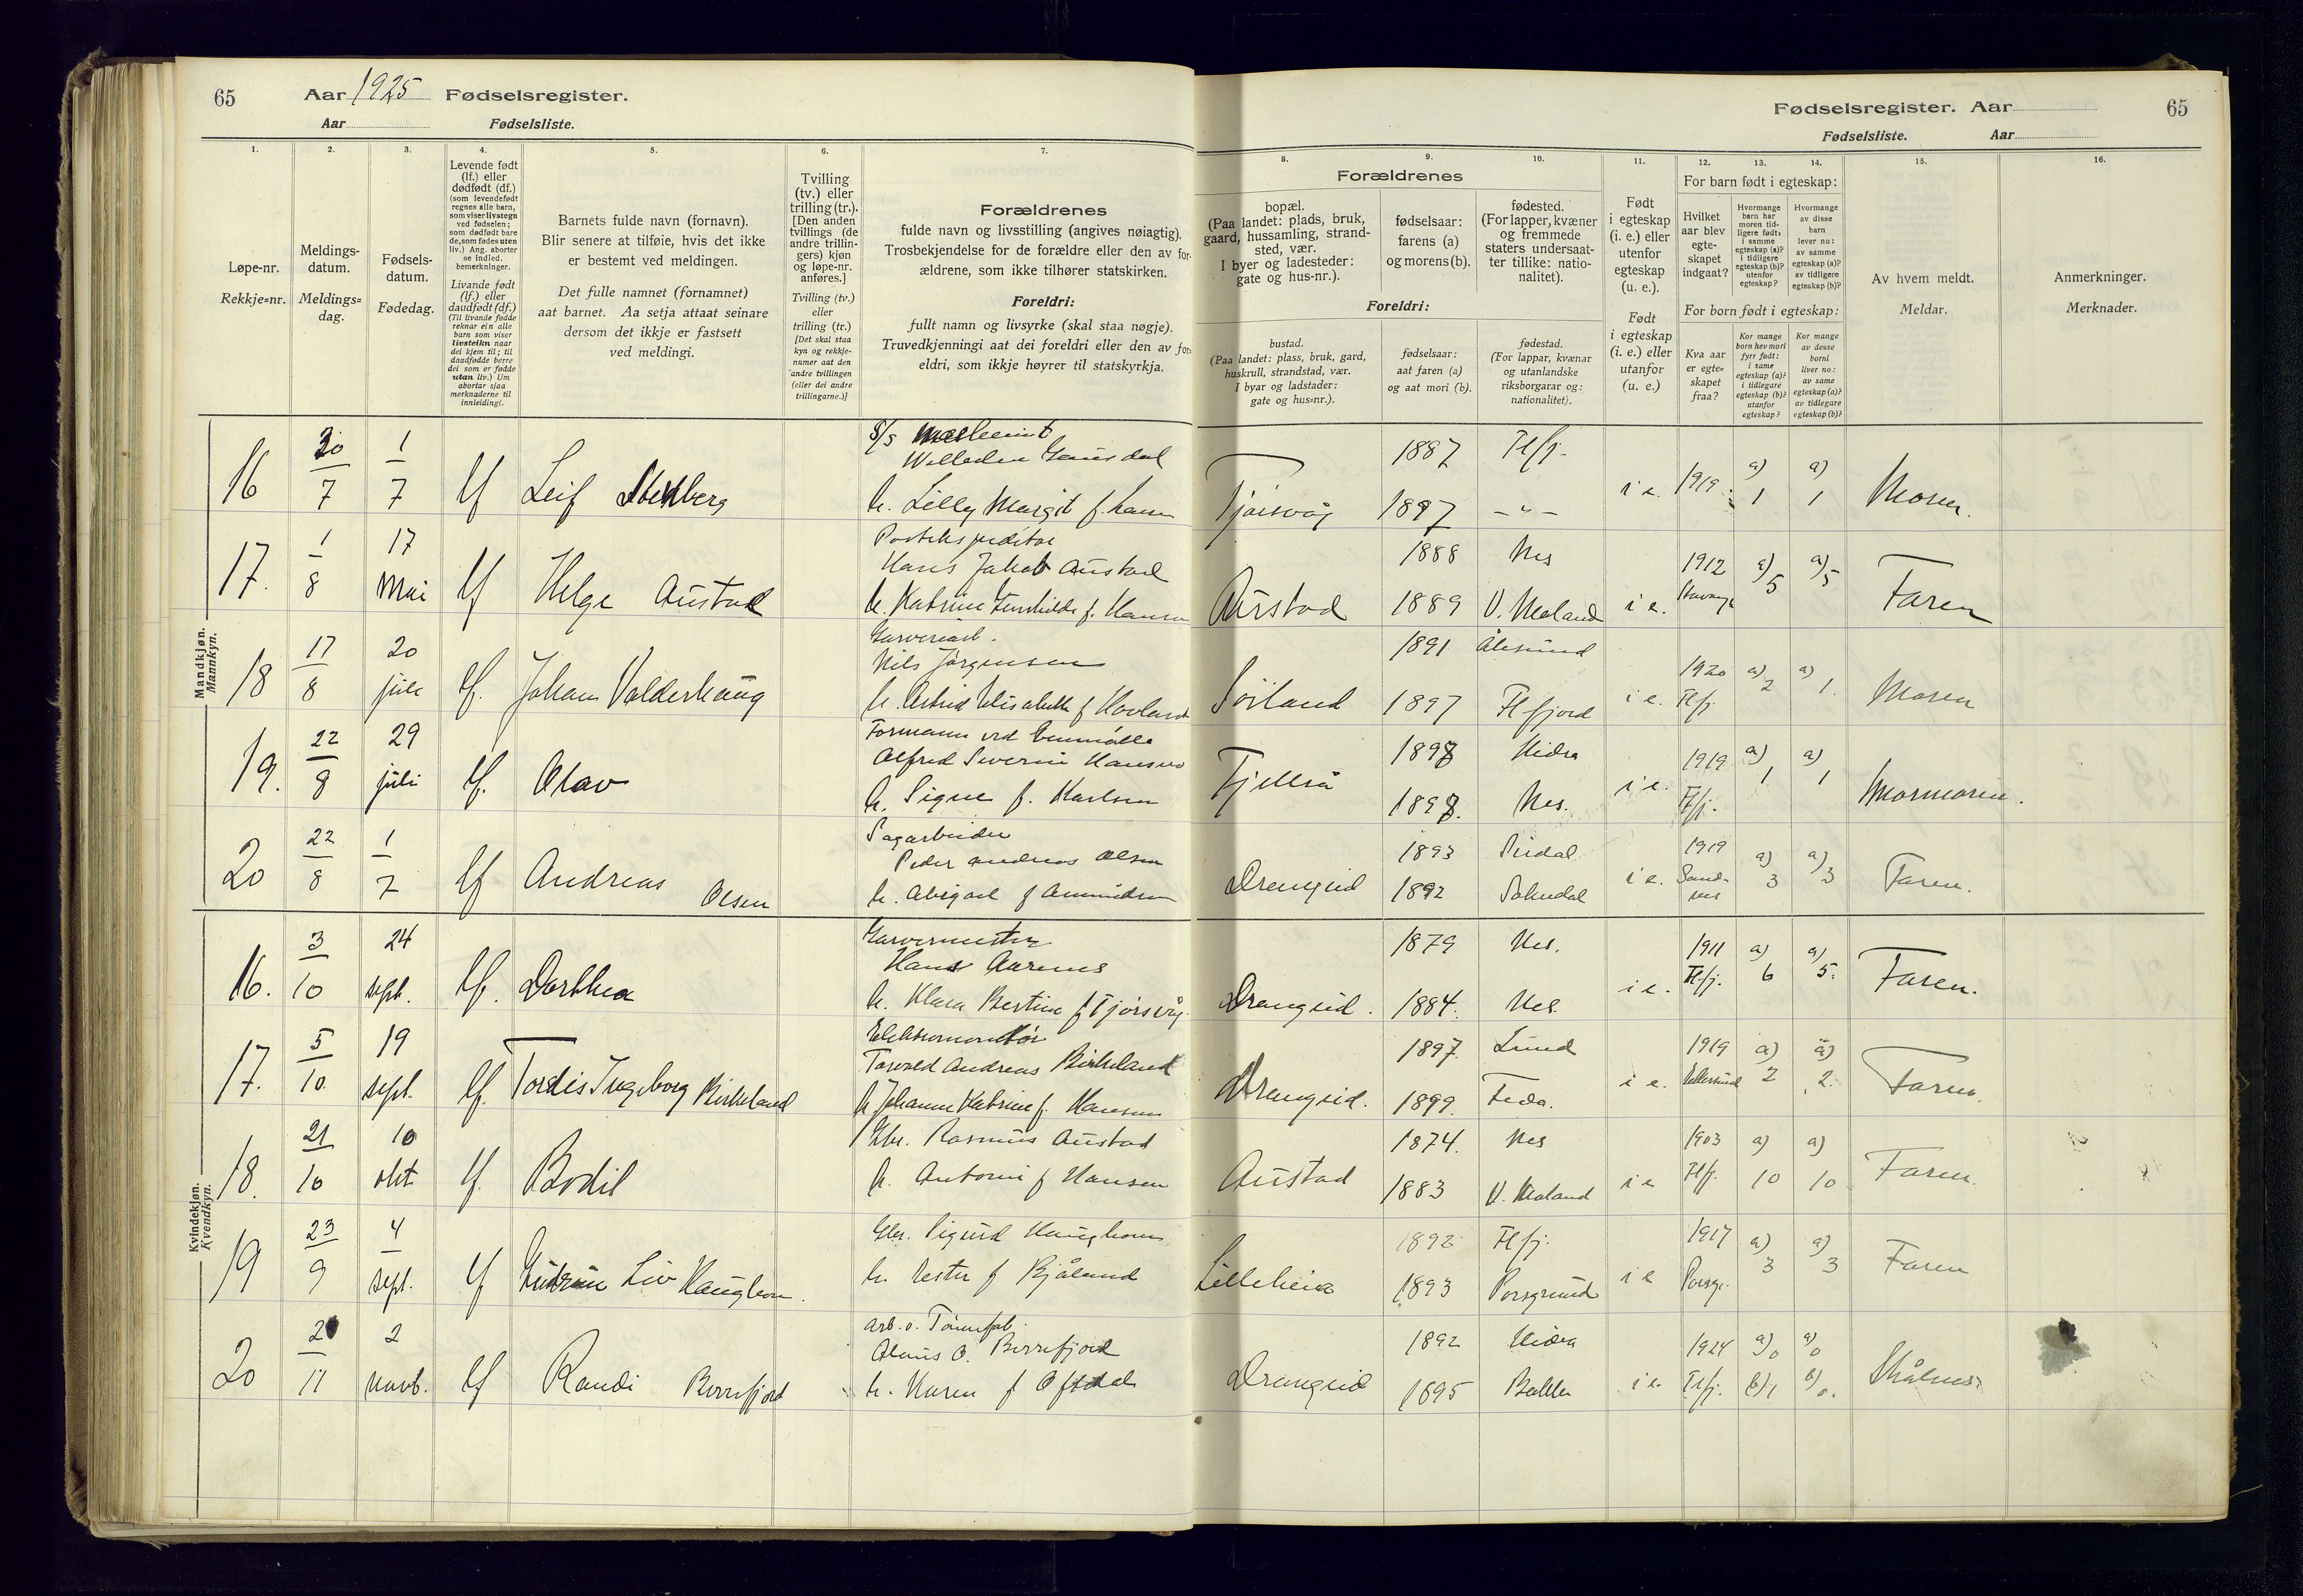 65
Aar 1925 Fødselsregister.
Aar Fødselsliste.
1.
2.
3.
4.
5.
6.
7.
Løpe-nr.
Rekkje=nr.
Meldings-
datum.
Meldings=
dag.
Fødsels-
datum.
Fødedag.
Levende født
(lf.) eller
dødfødt (df.)
(som levendefødt
regnes alle barn,
som viser livstegn
ved fødselen;
som dødfødt bare
de, som fødes uten
liv.) Ang. aborter
se indled.
bemerkninger.
Livande født
(lf.) eller
daudfødt (df.)
(Til livande fødde
reknar ein alle
barn som viser
livsteikn naar
dei kjem til; til
daudfødde berre
dei som er fødde
utan liv.) Um
abortar sjaa
merknaderne til
innleidingi.
Barnets fulde navn (fornavn).
Blir senere at tilføie, hvis det ikke
er bestemt ved meldingen.
Det fulle namnet (fornamnet)
aat barnet. Aa setja attaat seinare
dersom det ikkje er fastsett
ved meldingi.
Tvilling
(tv.) eller
trilling (tr.).
[Den anden
tvillings (de
andre trillin-
gers) kjøn
og løpe-nr.
anføres.]
Tvilling (tv.)
eller
trilling (tr.)
[Det skal staa
kyn og rekkje-
numer aat den
andre tvillingen
(eller dei andre
trillingarne.)]
Forældrenes
fulde navn og livsstilling (angives nøiagtig).
Trosbekjendelse for de forældre eller den av for-
ældrene, som ikke tilhører statskirken.
Foreldri:
fullt namn og livsyrke (skal staa nøgje).
Truvedkjenningi aat dei foreldri eller den av for-
eldri, som ikkje høyrer til statskyrkja.
Fødselsregister. Aar
65
Fødselsliste. Aar
8.
9.
10.
11.
12.
13.
14.
15.
16.
Forældrenes
bopæl.
(Paa landet: plads, bruk,
gaard, hussamling, strand-
sted, vær.
I byer og ladesteder:
gate og hus-nr.).
fødselsaar:
farens (a)
og morens (b).
fødested.
(For lapper, kvæner
og fremmede
staters undersaat-
ter tillike: natio-
nalitet).
Foreldri:
bustad.
(Paa landet: plass, bruk, gard,
huskrull, strandstad, vær.
I byar og ladstader:
gate og hus=nr.).
fødselsaar:
aat faren (a)
og aat mori (b).
fødestad.
(For lappar, kvænar
og utanlandske
riksborgarar og:
nationalitet).
Født
i egteskap
(i. e.) eller
utenfor
egteskap
(u. e.).
Født
i egteskap
(i. e.) eller
utanfor
(u. e.)
For barn født i egteskap:
Hvilket
aar blev
egte-
skapet
indgaat?
Hvormange
barn har
moren tid-
ligere født:
i samme
egteskap (a)?
i tidligere
egteskap (b)?
utenfor
egteskap?
Hvormange
av disse
barn
lever nu:
av samme
egteskap (a)?
av tidligere
egteskap (b)?
For born født i egteskap:
Kva aar
er egte=
skapet
fraa?
Kor mange
born hev mori
fyrr født:
i same
egteskap (a)?
i tidlegare
egteskap (b)?
utanfor
egteskap?
Kor mange
av desse
borni
liver no:
av same
egteskap (a)?
av tidlegare
egteskap (b)?
Av hvem meldt.
Meldar.
Anmerkninger.
Merknader.
Mandkjøn.
Mannkyn.
16 30/7 1/7 lf Leif Stenberg
h. Lilly Margit f. Larsen
Tjørsvåg 1887 Flfj. 1897 – " – i e. 1919 a) 1 a) 1 Moren.
17. 1/8 17 Mai lf Helge Austad
Postekspeditør
Hans Jakob Austad
h. Katrine f. Hansen
Austad 1888 Nes 1889 V. Moland i e. 1912 a) 5 a) 5 Faren
18 17/8 20 juli lf. Johan Valderhaug
Garveriarb.
Nils Jørgensen
h. Astrid Elisabeth f Hovland
Sørland 1891 Ålesund 1897 Flfjord i e. 1920 Flfj. a) 2 a) 1. Moren
19. 22/8 29 juli lf. Olav
Formann ved
Alfred Severin Hansen
h. Signe f. Karlsen
Fjellså 1898 Hidra 1898. Nes. i e. 1919 Flfj. a) 1 a) 1 Mormoren.
20 22/8 1/7 lf Andreas Olsen
Sagarbeider
Peder Andreas Olsen
h. Abigael f Amundsen
Drangeid 1893 Sirdal 1892 Sokndal i e. 1919 Sand-nes a) 3 a) 3 Faren.
Kvindekjøn.
Kvendkyn.
16. 3/10 24 sept. lf. Dorthea
Garvermester
Hans Aarenes
h. Klara Bertine f Tjørsvåg.
Drangeid. 1879 Nes. 1884. Nes. i e. 1911 Flfj. a) 6 a) 5. Faren.
17. 5/10. 19 sept. lf. Tordis Ingeborg Birkeland
Elektromontør
Torvald Andreas Birkeland
h Johanne Katrine f. Hansen
Drangeid. 1897. Lund 1899. Feda. i e. 1919 a) 2 a) 2. Faren.
18. 21/10 10 okt lf. Bodil
Gbr. Rasmus Austad
h. Antonie f Hansen
Austad 1874. Nes 1883 V. Moland i e 1903 Flfj. a) 10 a) 10 Faren.
19 23/9 4 sept. lf Gudrun Liv Haughom.
Gbr. Sigurd Haughom
h. Ester f Bjåland
Lilleheia 1892 Flfj. 1893 Porsgrund i e 1917 Porsgr. a) 3 a) 3 Faren
20 2/11 2 novb. lf Randi Berrefjord
arb. v. Tønnefab.
Olaus O. Berrefjord
h. Karen f Oftedal
Drangeid 1892 Hidra 1895 Bakke i e. 1924 Flfj. a) 0 b) 1 a) 0 b) 0.